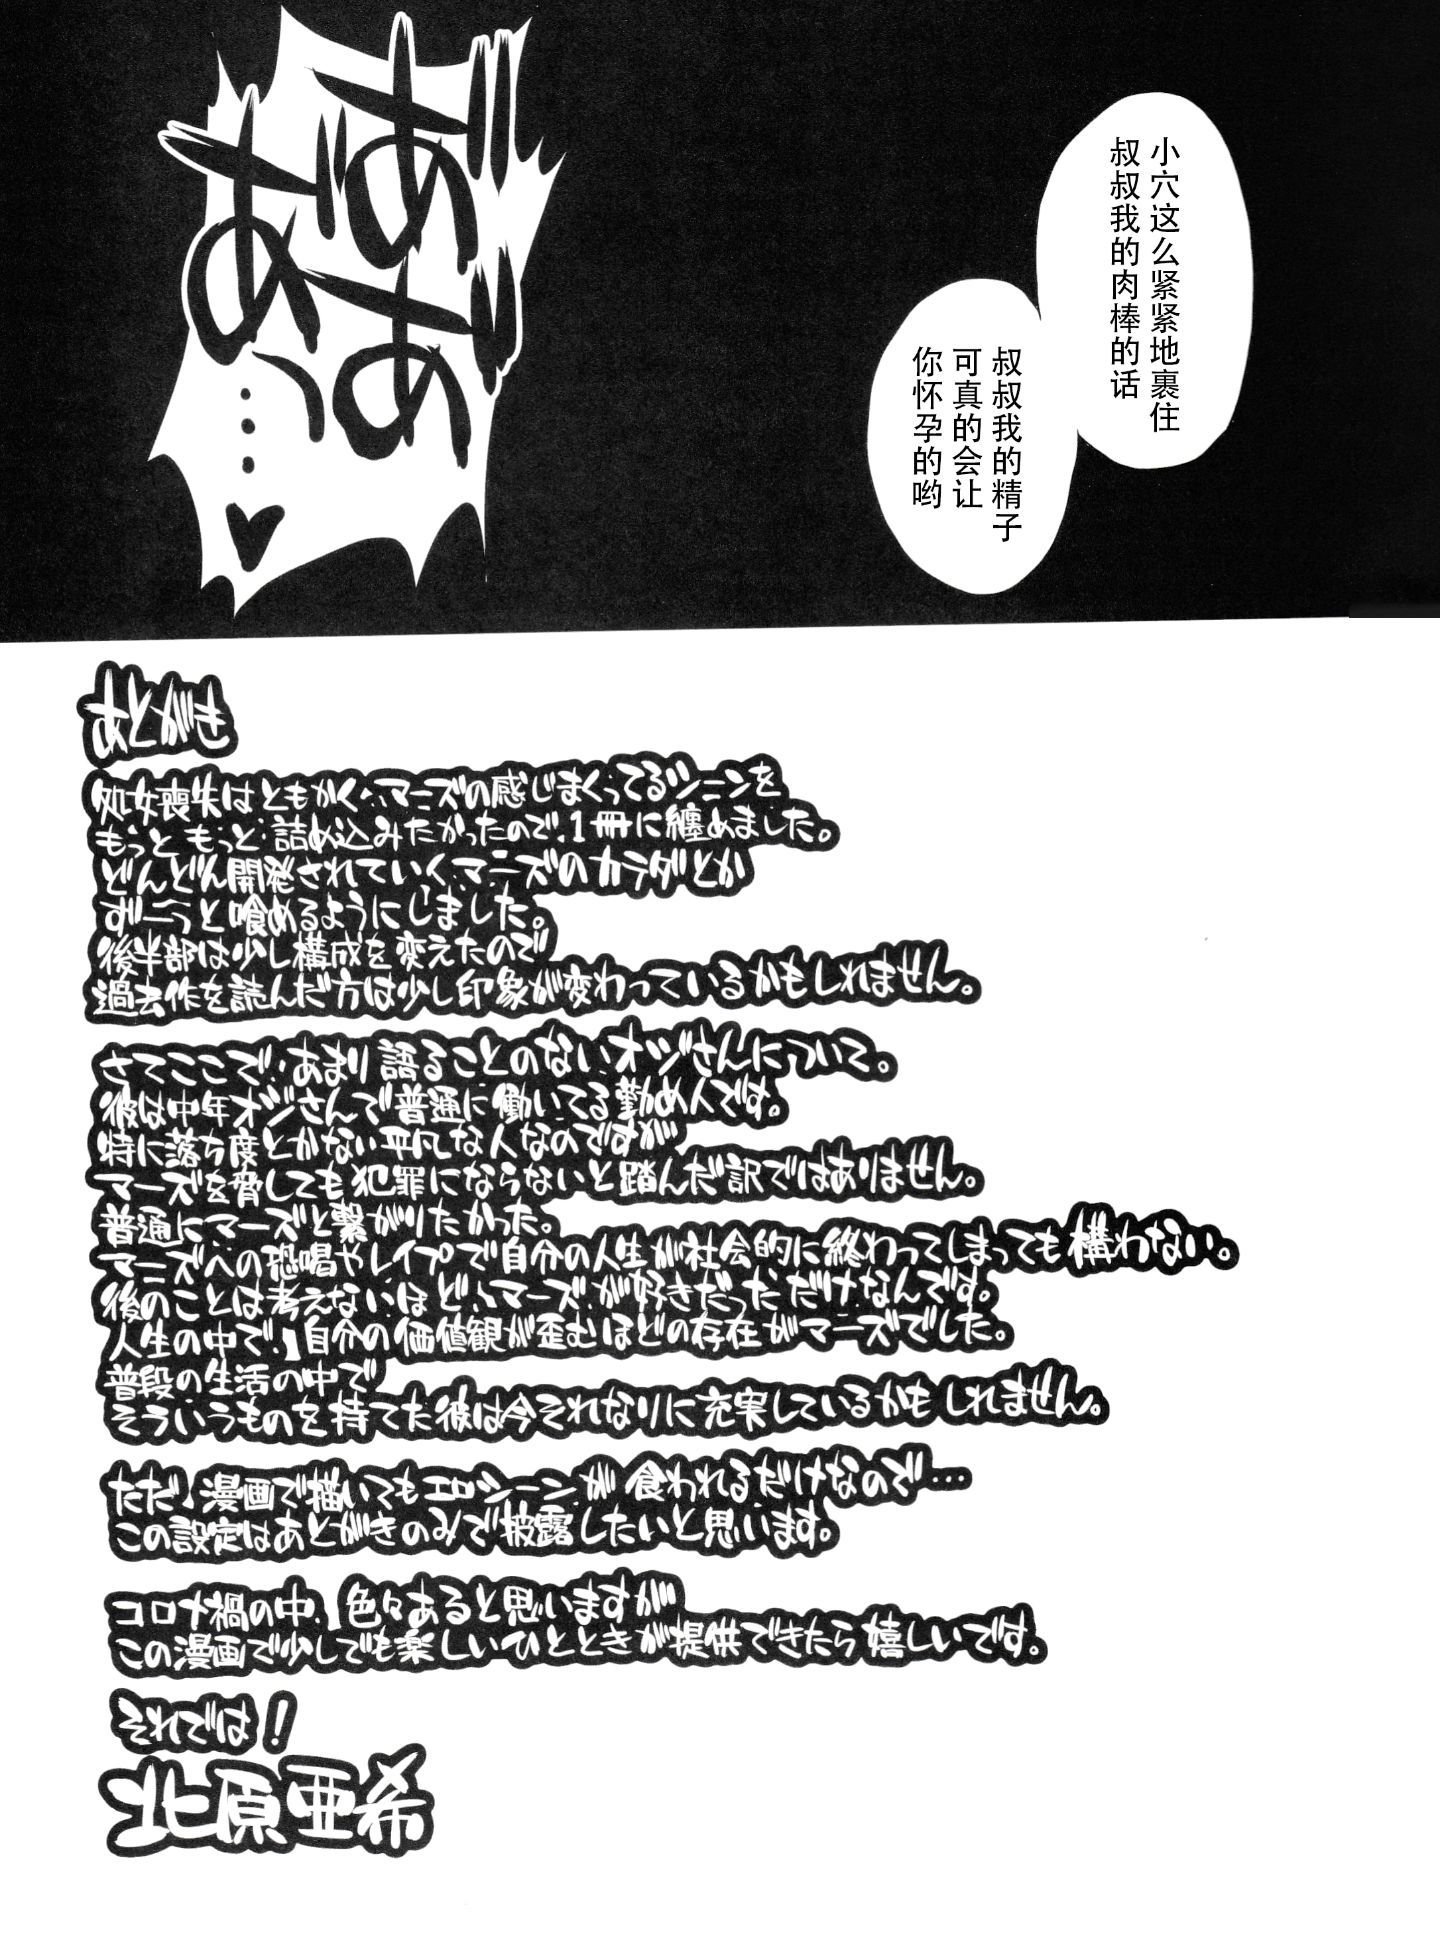 小穴这么紧紧地裹住
叔叔我的肉棒的话
叔叔我的精子
可真的会让
你怀孕的哟
あ"あ"
あ"あ"っ…♥
あとがき
処女喪失はともかく、マーズの感じまくってるシーンを
もっともっと詰め込みたかったので、1冊に纏めました。
どんどん開発されていく、マーズのカラダとか
ずーっと喰めるようにしました。
後半部は少し構成を変えたので
過去作を読んだ方は少し印象が変わっているかもしれません。
さてここで、あまり語ることのないオジさんについて。
彼は中年オジさんで普通に働いてる勤め人です。
特に落ち度とかない平凡な人なのですが、
マーズを脅しても犯罪にならないと踏んだ訳ではありません。
普通にマーズと繋がりたかった。
マーズへの恐喝やレイプで自分の人生が社会的に終わってしまっても構わない。
後のことは考えないほど、マーズが好きだっただけなんです。
人生の中で、自分の価値観が歪むほどの存在がマーズでした。
普段の生活の中で
そういうものを持てた彼は今それなりに充実しているかもしれません。
ただ、漫画で描いてもエロシーンが食われるだけなので…
この設定はあとがきのみで披露したいと思います。
コロナ禍の中、色々あると思いますが
この漫画で少しでも楽しいひとときが提供できたら嬉しいです。
それでは!
北原亜希